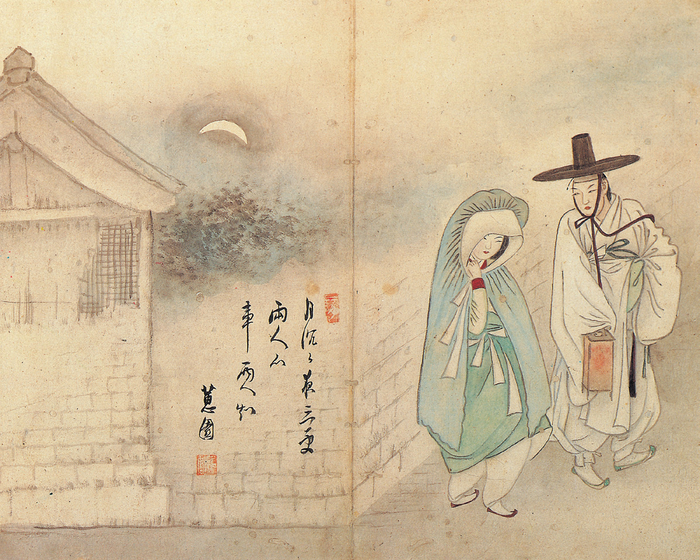 月沈々夜三更
兩人心
事兩人知
蕙園